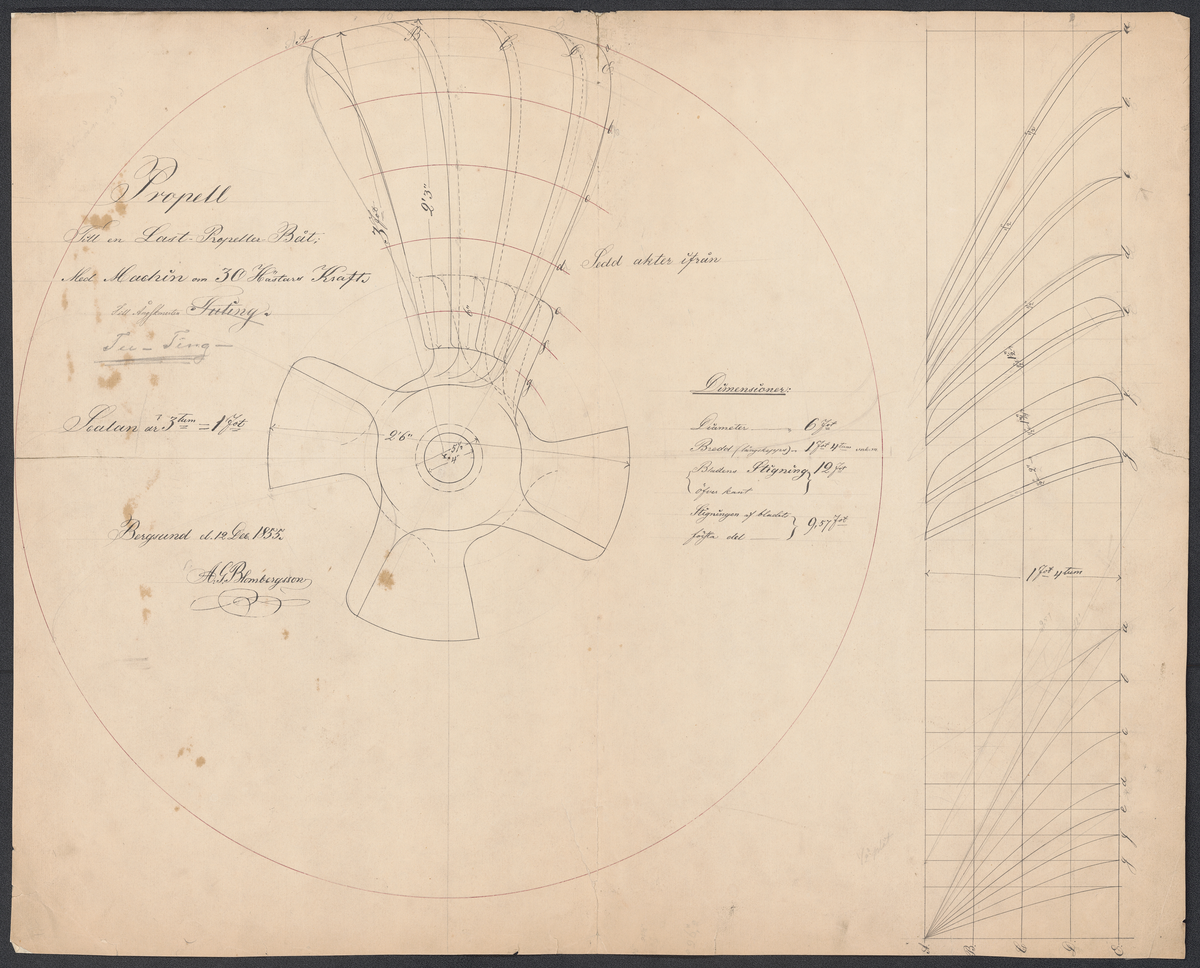 Propell
Till en Last-Propeller Båt;
Med Machin om 30 Hästars Kraft
Till Ångslupen Futing.
Fu-Ting
Scalan är 3 tum = 1 Fot
Bergsund d. 12 Dec. 1855.
A. G. Blombergsson
A
B
C
D
E
b
c
d
e
f
g
3 Fot
2' 3"
8"
2' 6"
5½"
4"
Sedd akter ifrån
Dimensioner:
Diameter 6 Fot
Bredd 1 Fot 4 tum
Bladens Stigning 12 Fot
öfver kant
Stigningen af bladets 9,57 Fot
del
a
b
c
d
e
f
g
1 Fot 4 tum
a
b
c
d
e
f
g
A
B
C
D
E